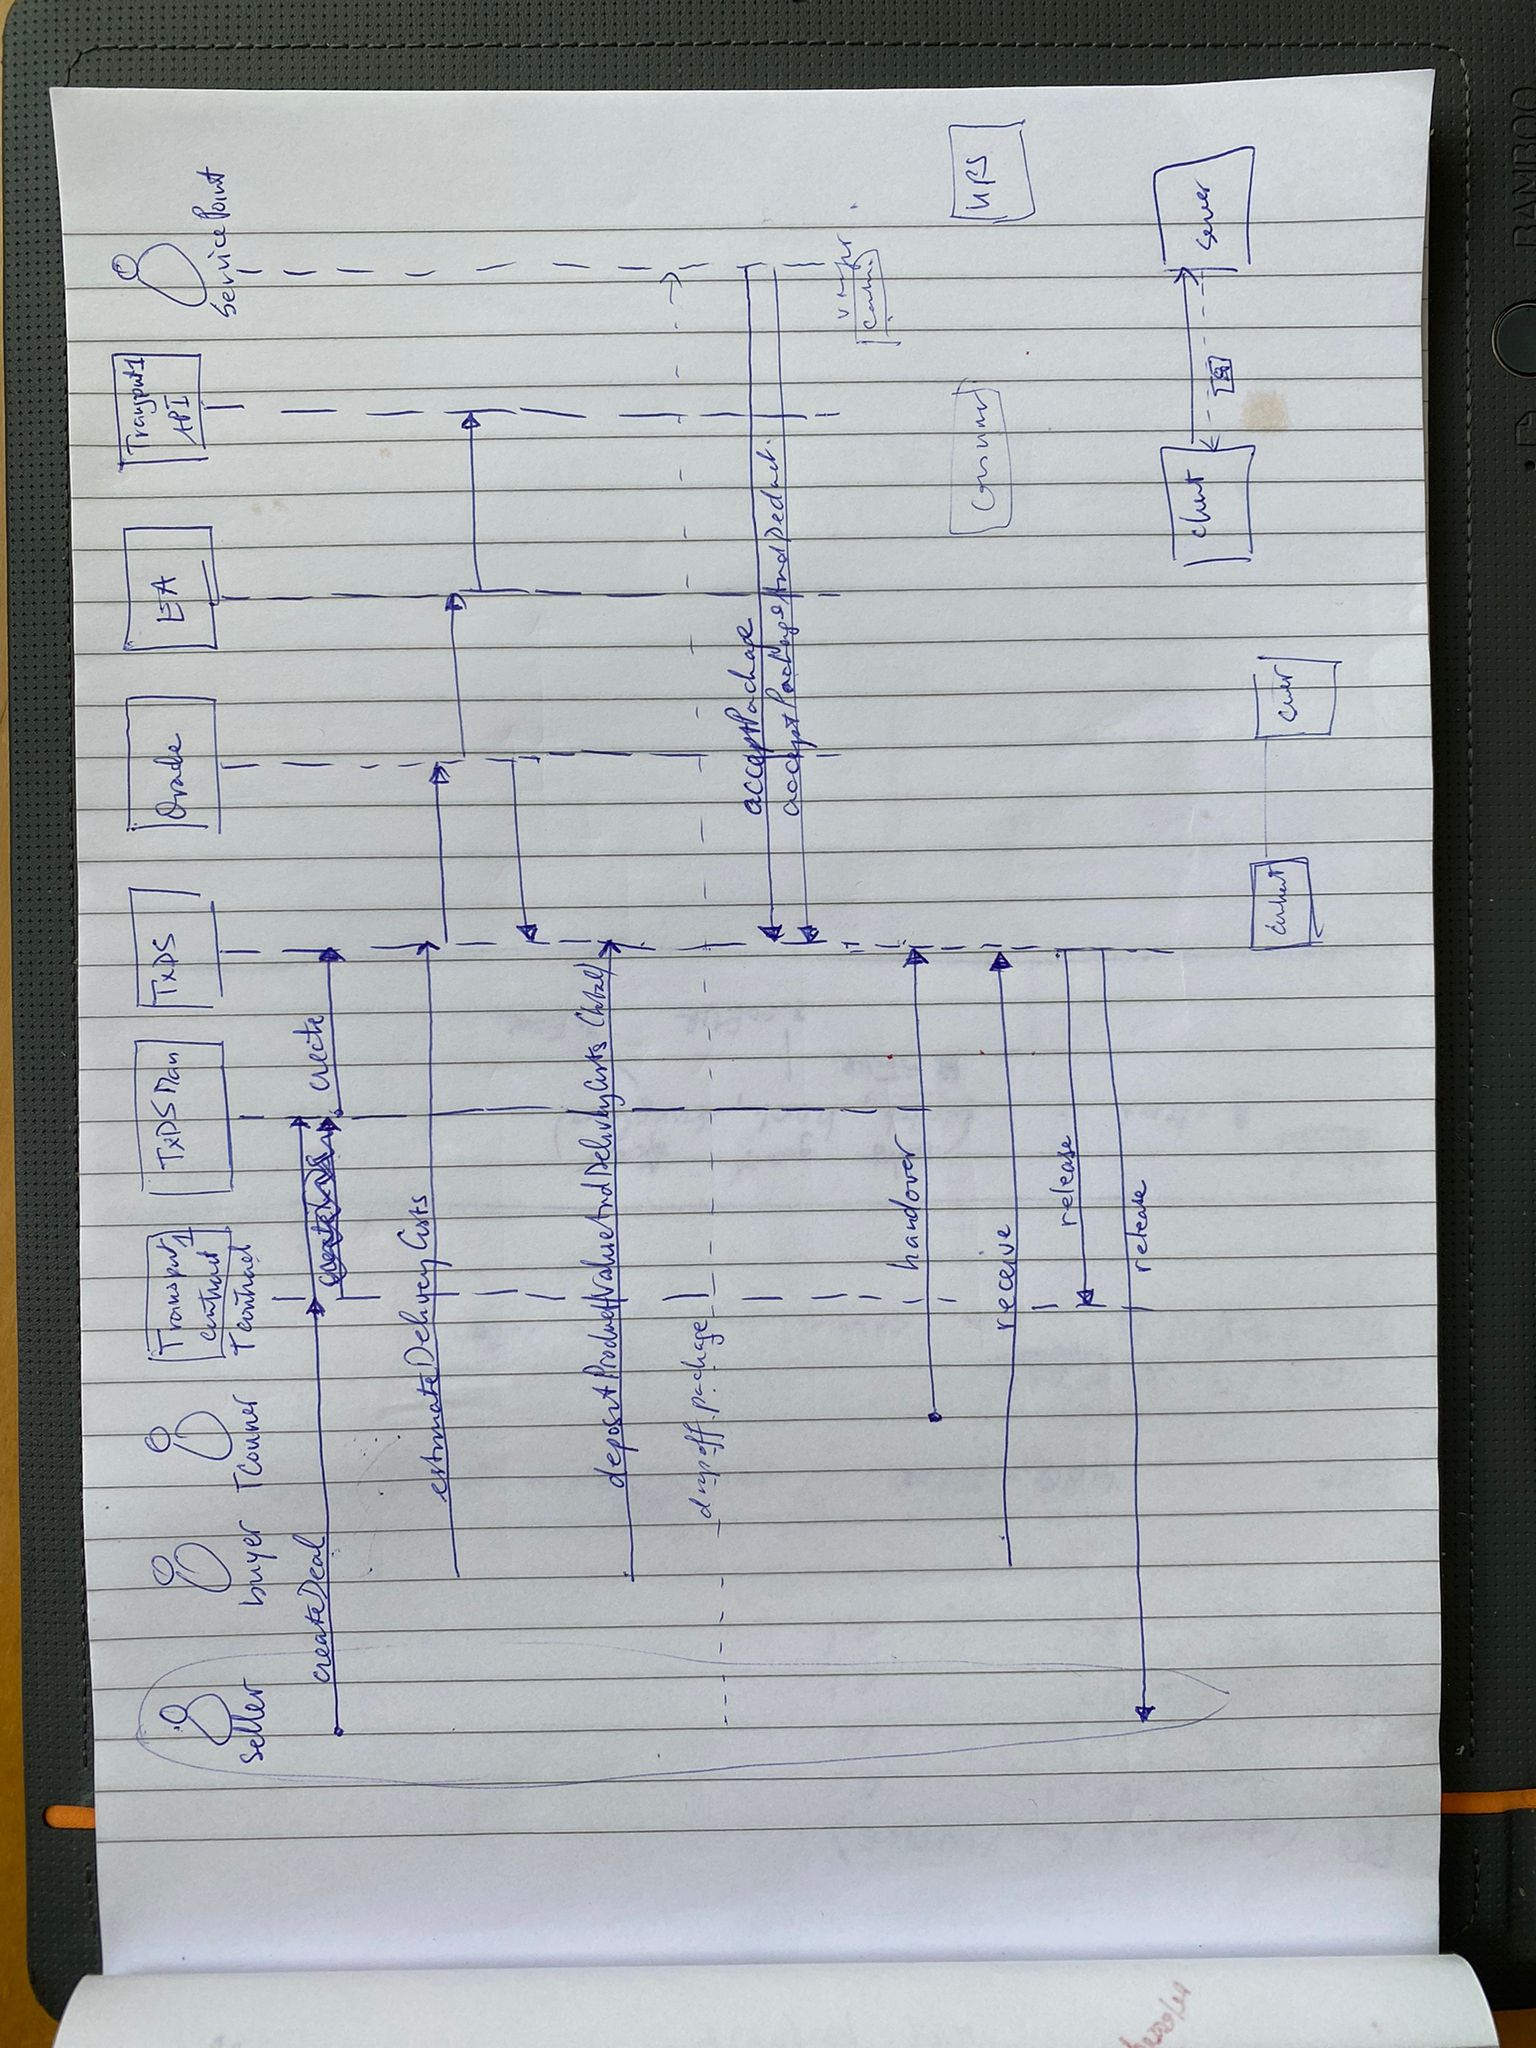 Seller
buyer
TCourier
Transport1
contract
Tcontract
TxDSMan
TxDS
Oracle
EA
Transport1
API
ServicePoint
createDeal
create
estimateDeliveryCosts
depositProductValueAndDeliveryCosts (total)
dropoff package
acceptPackage
acceptPackageAndDeduct
handover
receive
release
release
UPS
Consumer
client
server
BAMBOO